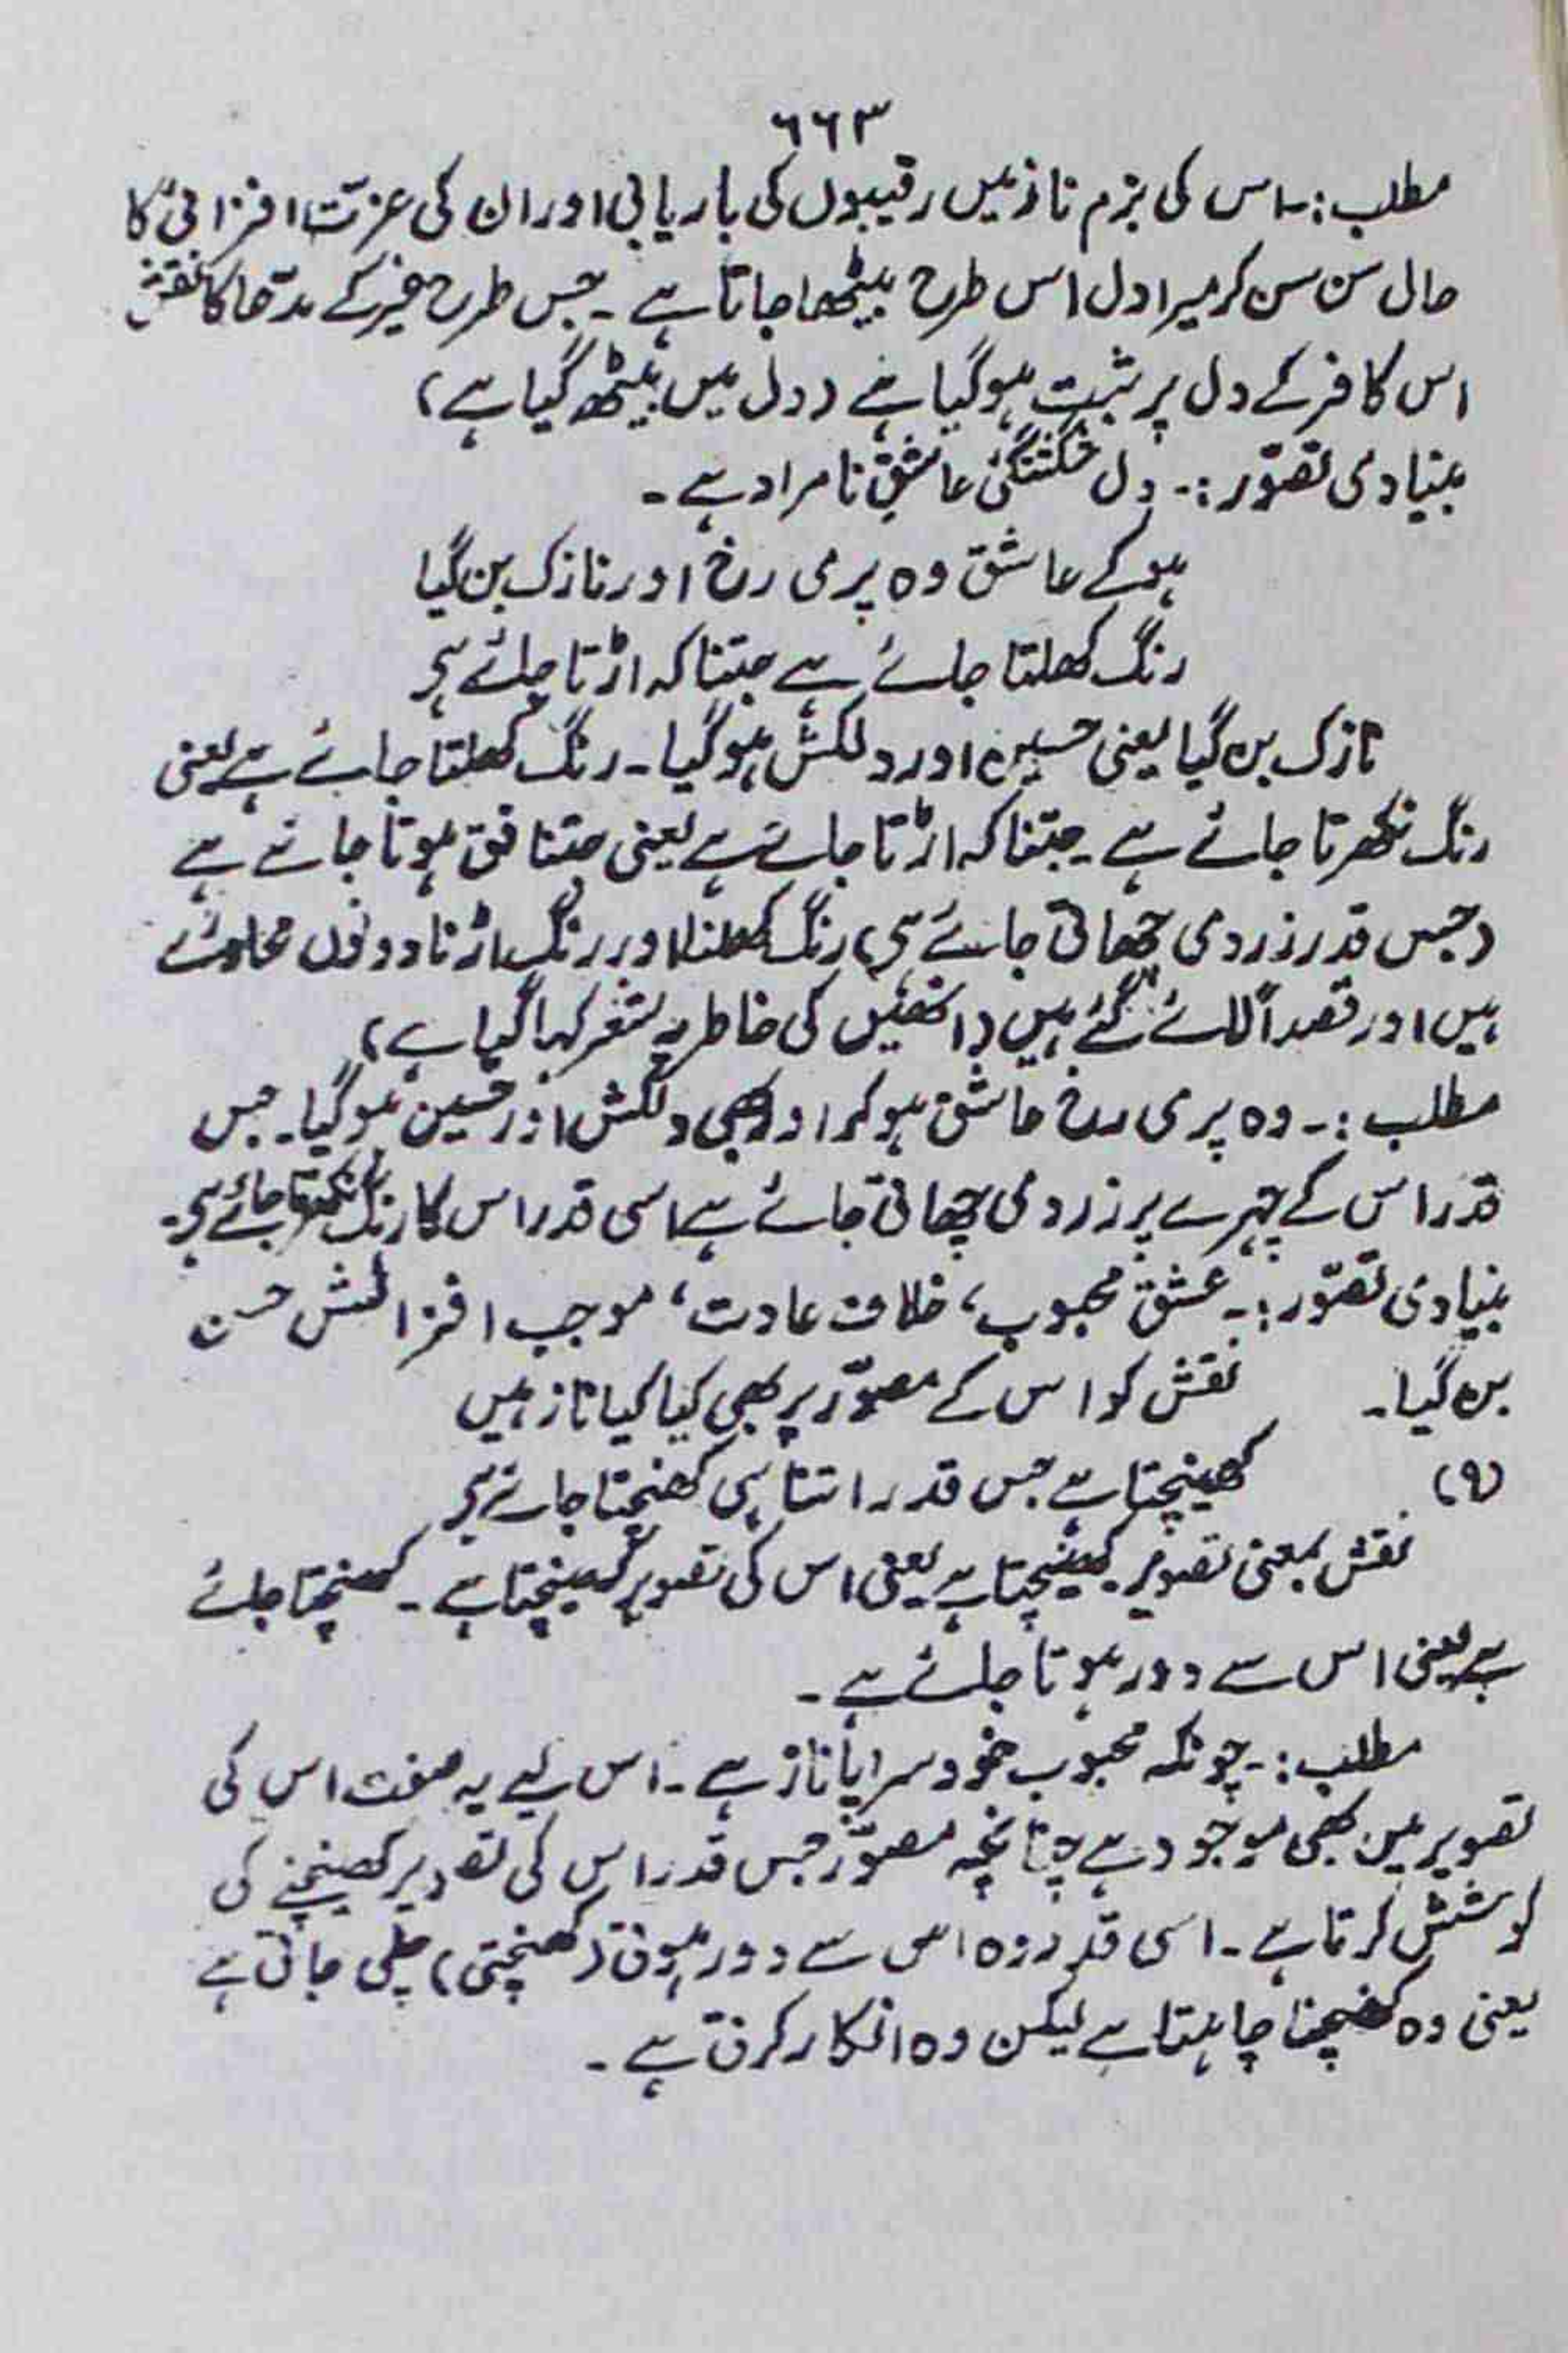 ۶۶۳
مطلب :۔ اس کی بزم ناز میں رقیبوں کی باریابی اور ان کی عزّت افزائی کا
حال سن سن کر میرا دل اس طرح بیٹھا جاتا ہے ۔ جس طرح غیر کے مدّعا کا نقش
اس کافر کے دل پر ثبت ہو گیا ہے (دل میں بیٹھ گیا ہے)
بنیادی تصوّر :۔ دل شکستگیٔ عاشقِ نامراد ہے ۔
ہو کے عاشق وہ پری رخ اور نازک بن گیا
رنگ کھلتا جائے ہے جتنا کہ اڑتا جائے ہے
نازک بن گیا یعنی حسین اور دلکش ہو گیا ۔ رنگ کھلتا جائے ہے یعنی
رنگ نکھرتا جائے ہے ۔ جتنا کہ اڑتا جائے ہے یعنی جتنا فق ہوتا جائے ہے
(جس قدر زردی چھاتی جائے ہے) رنگ کھلنا اور رنگ اڑنا دونوں محاورے
ہیں اور قصداً لائے گئے ہیں (انھیں کی خاطر یہ شعر کہا گیا ہے)
مطلب :۔ وہ پری رخ عاشق ہو کر اور بھی دلکش اور حسین ہو گیا ۔ جس
قدر اس کے چہرے پر زردی چھاتی جائے ہے اسی قدر اس کا رنگ نکھرتا جائے ہے ۔
بنیادی تصوّر :۔ عشق محبوب، خلاف عادت، موجب افزائش حسن
بن گیا ۔ نقش کو اس کے مصوّر پر بھی کیا کیا ناز ہیں
(۹) کھینچتا ہے جس قدر اتنا ہی کھنچتا جائے ہے
نقش بمعنی تصویر ۔ کھینچتا ہے یعنی اس کی تصویر کھینچتا ہے ۔ کھنچتا جائے
ہے یعنی اس سے دور ہوتا جائے ہے ۔
مطلب :۔ چونکہ محبوب خود سراپا ناز ہے ۔ اس لیے یہ صفت اس کی
تصویر میں بھی موجود ہے چنانچہ مصوّر جس قدر اس کی تصویر کھینچنے کی
کوشش کرتا ہے ۔ اسی قدر وہ اس سے دور ہوتی (کھنچتی) چلی جاتی ہے
یعنی وہ کھینچنا چاہتا ہے لیکن وہ انکار کرتی ہے ۔